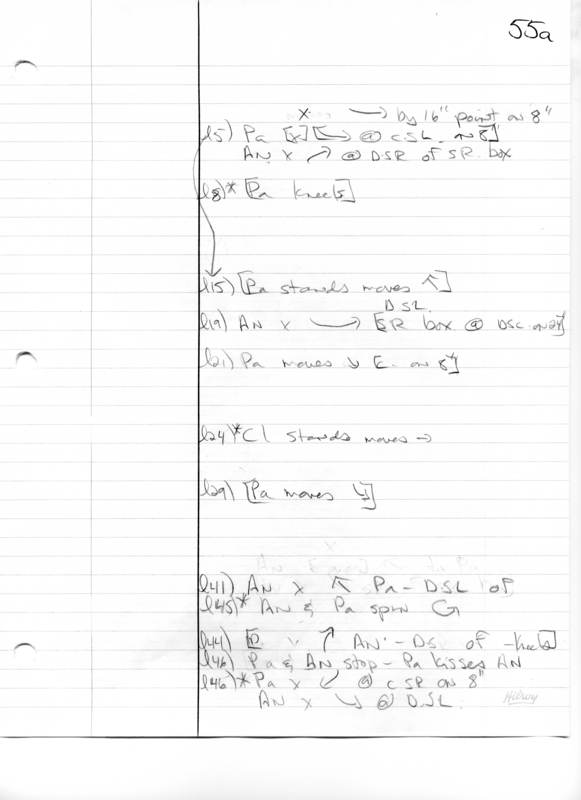 55a
x → by 16" point on 8"
l5) Pa [x] [↳ @ CSL on 8"]
AN x ↗ @ DSR of SR box
l8)* [Pa kneels]
l15) [Pa stands moves ↖]
DSL
l19) AN x → [SR box @ DSC on 24"]
l21) Pa moves ↘ [. on 8"]
l24)* Cl stands moves →
l29) [Pa moves ↘]
l41) AN x ↖ Pa - DSL of
l45)* AN & Pa spin
l44) ↗ AN - DS of
l46) Pa & AN stop - Pa kisses AN
l46)* Pa x ↙ @ CSR on 8"
AN x ↘ @ DSL
Hilroy